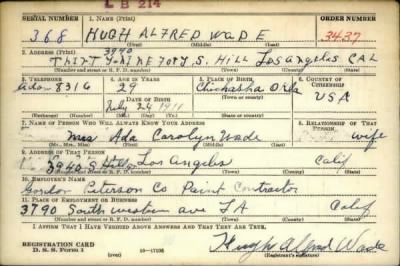 L B 214
SERIAL NUMBER 1. NAME (Print) ORDER NUMBER
368 HUGH ALFRED WADE 3437
(First) (Middle) (Last)
2. ADDRESS (Print)
3940
S. HILL LOS ANGELES CAL
(Number and street or R. F. D. number) (Town) (County) (State)
3. TELEPHONE 4. AGE IN YEARS 5. PLACE OF BIRTH 6. COUNTRY OF CITIZENSHIP
8316 29 Chickasha Okla
DATE OF BIRTH (Town or county) USA
July 24 1911
(Exchange) (No.) (Mo.) (Day) (Yr.) (State or country)
7. NAME OF PERSON WHO WILL ALWAYS KNOW YOUR ADDRESS 8. RELATIONSHIP OF THAT PERSON
Mrs Ada Carolyn Wade wife
(Mr., Mrs., Miss) (First) (Middle) (Last)
9. ADDRESS OF THAT PERSON
3940 S Hill Los Angeles Calif
(Number and street or R. F. D. number) (Town) (County) (State)
10. EMPLOYER'S NAME
Gordon Peterson Co Paint Contractor
11. PLACE OF EMPLOYMENT OR BUSINESS
3790 South western ave LA Calif
(Number and street or R. F. D. number) (Town) (County) (State)
I AFFIRM THAT I HAVE VERIFIED ABOVE ANSWERS AND THAT THEY ARE TRUE.
REGISTRATION CARD
D. S. S. Form 1 (over) Hugh Alfred Wade
(Registrant's signature)